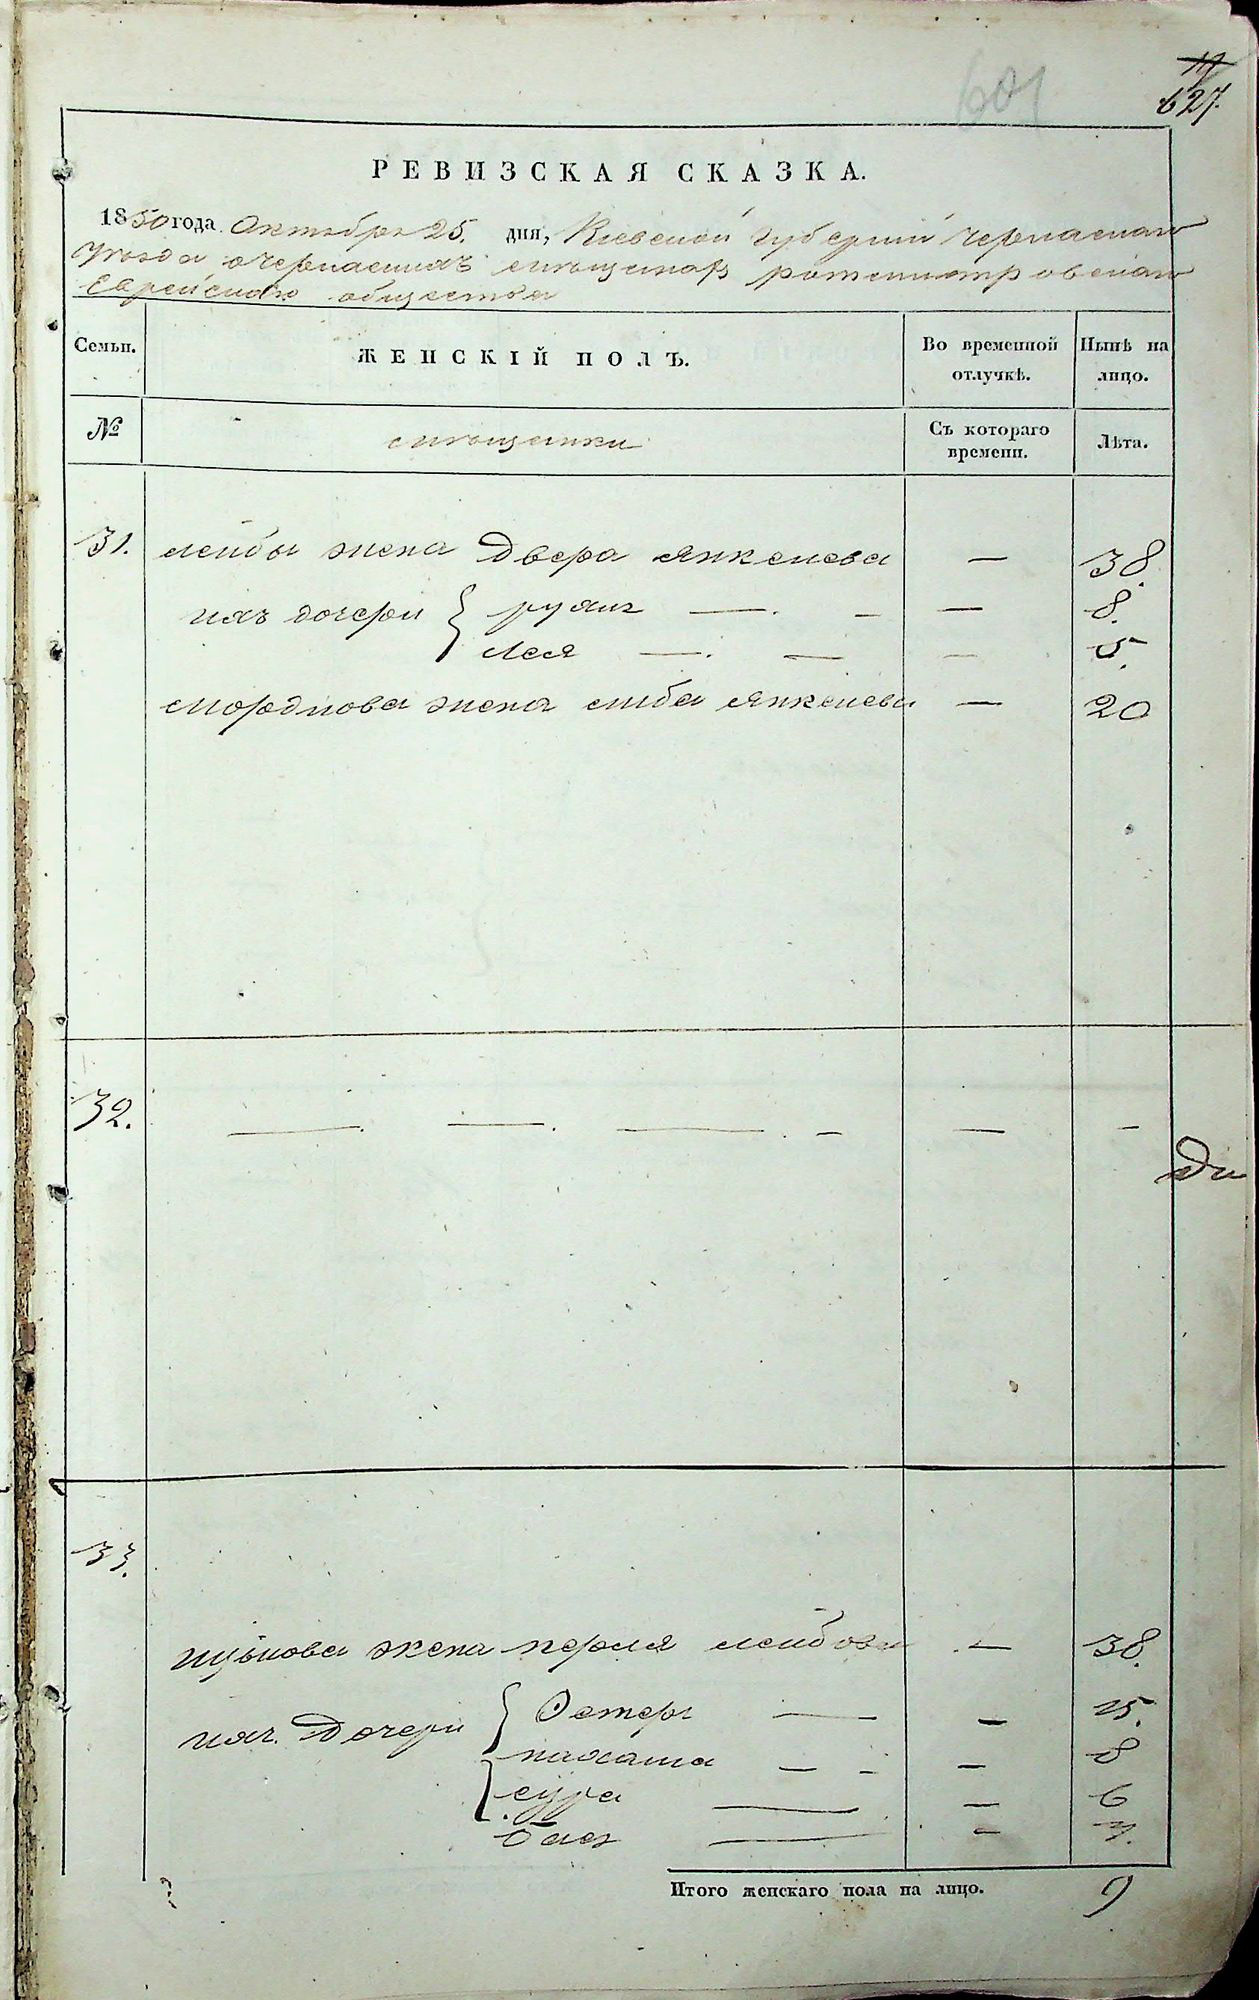 19
627.
601
РЕВИЗСКАЯ СКАЗКА.
1850 года Октября 25. дня, Киевской губернии Черкаскаго
Уезда о черкаскихъ мещанах ротмистровскаго
Еврейскаго общества
Семьи.
ЖЕНСКІЙ ПОЛЪ.
Во временной отлучкѣ.
Нынѣ на лицо.
№
мещанки
Съ котораго времени.
Лѣта.
31. лейбы жена Двера Янкелева — 38.
ихъ дочери — . — — 8.
Лея — . — — 5.
мордкова жена Янкелева — 20
32. — . — . — . — — —
Ди
33.
жена перля лейбова — 38.
ихъ Дочери Эстеръ — — 15.
— — — 8
сура — — 6
— —
Итого женскаго пола на лицо. 9